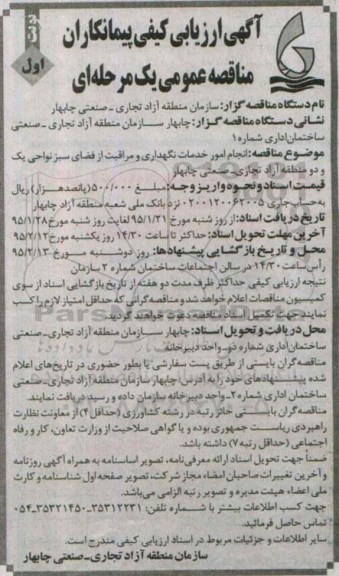 نوبت اول
آگهی ارزیابی کیفی پیمانکاران
مناقصه عمومی یک مرحله‌ای
نام دستگاه مناقصه گزار: سازمان منطقه آزاد تجاری ـ صنعتی چابهار
نشانی دستگاه مناقصه گزار: چابهار سازمان منطقه آزاد تجاری ـ صنعتی
ساختمان اداری شماره ۱
موضوع مناقصه: انجام امور خدمات نگهداری و مراقبت از فضای سبز نواحی یک
و دو منطقه آزاد تجاری ـ صنعتی چابهار
قیمت اسناد و نحوه واریز وجه: مبلغ ۵۰۰/۰۰۰ (پانصد هزار) ریال
به حساب جاری ۰۲۰۰۱۲۰۰۶۲۰۰۵ نزد بانک ملی شعبه منطقه آزاد چابهار
تاریخ دریافت اسناد: از روز شنبه مورخ ۹۵/۱/۲۱ لغایت روز شنبه مورخ ۹۵/۱/۲۸
آخرین مهلت تحویل اسناد: حداکثر تا ساعت ۱۴/۳۰ روز یکشنبه مورخ ۹۵/۲/۱۲
محل و تاریخ بازگشایی پیشنهادها: روز دوشنبه مورخ ۹۵/۲/۱۳
رأس ساعت ۱۴/۳۰ در سالن اجتماعات ساختمان شماره ۲ سازمان
نتیجه ارزیابی کیفی حداکثر ظرف مدت دو هفته از تاریخ بازگشایی اسناد از سوی
کمیسیون مناقصات اعلام خواهد شد و مناقصه گرانی که حداقل امتیاز لازم را کسب
نمایند جهت تکمیل اسناد مناقصه دعوت خواهند گردید.
محل دریافت و تحویل اسناد: چابهار سازمان منطقه آزاد تجاری ـ صنعتی
ساختمان اداری شماره دو ـ واحد دبیرخانه
مناقصه گران بایستی از طریق پست سفارشی یا بطور حضوری در تاریخ‌های اعلام
شده پیشنهادهای خود را به آدرس: چابهار سازمان منطقه آزاد تجاری ـ صنعتی
ساختمان اداری شماره ۲ ـ واحد دبیرخانه سازمان داده و رسید دریافت نمایند.
مناقصه گران بایستی حائز رتبه در رشته کشاورزی (حداقل ۴) از معاونت نظارت
راهبردی ریاست جمهوری بوده و یا گواهی صلاحیت از وزارت تعاون، کار و رفاه
اجتماعی (حداقل رتبه ۷) داشته باشد.
ضمناً جهت تحویل اسناد ارائه معرفی نامه، تصویر اساسنامه به همراه آگهی روزنامه
و آخرین تغییرات صاحبان امضاء مجاز شرکت، تصویر صفحه اول شناسنامه و کارت
ملی اعضاء هیئت مدیره و تصویر رتبه الزامی می‌باشد.
جهت کسب اطلاعات بیشتر با شماره تلفن: ۳۵۳۱۲۲۳۱ـ۳۵۳۲۱۴۵۰ـ۰۵۴
تماس حاصل فرمائید.
سایر اطلاعات و جزئیات مربوط در اسناد ارزیابی کیفی مندرج است.
سازمان منطقه آزاد تجاری ـ صنعتی چابهار